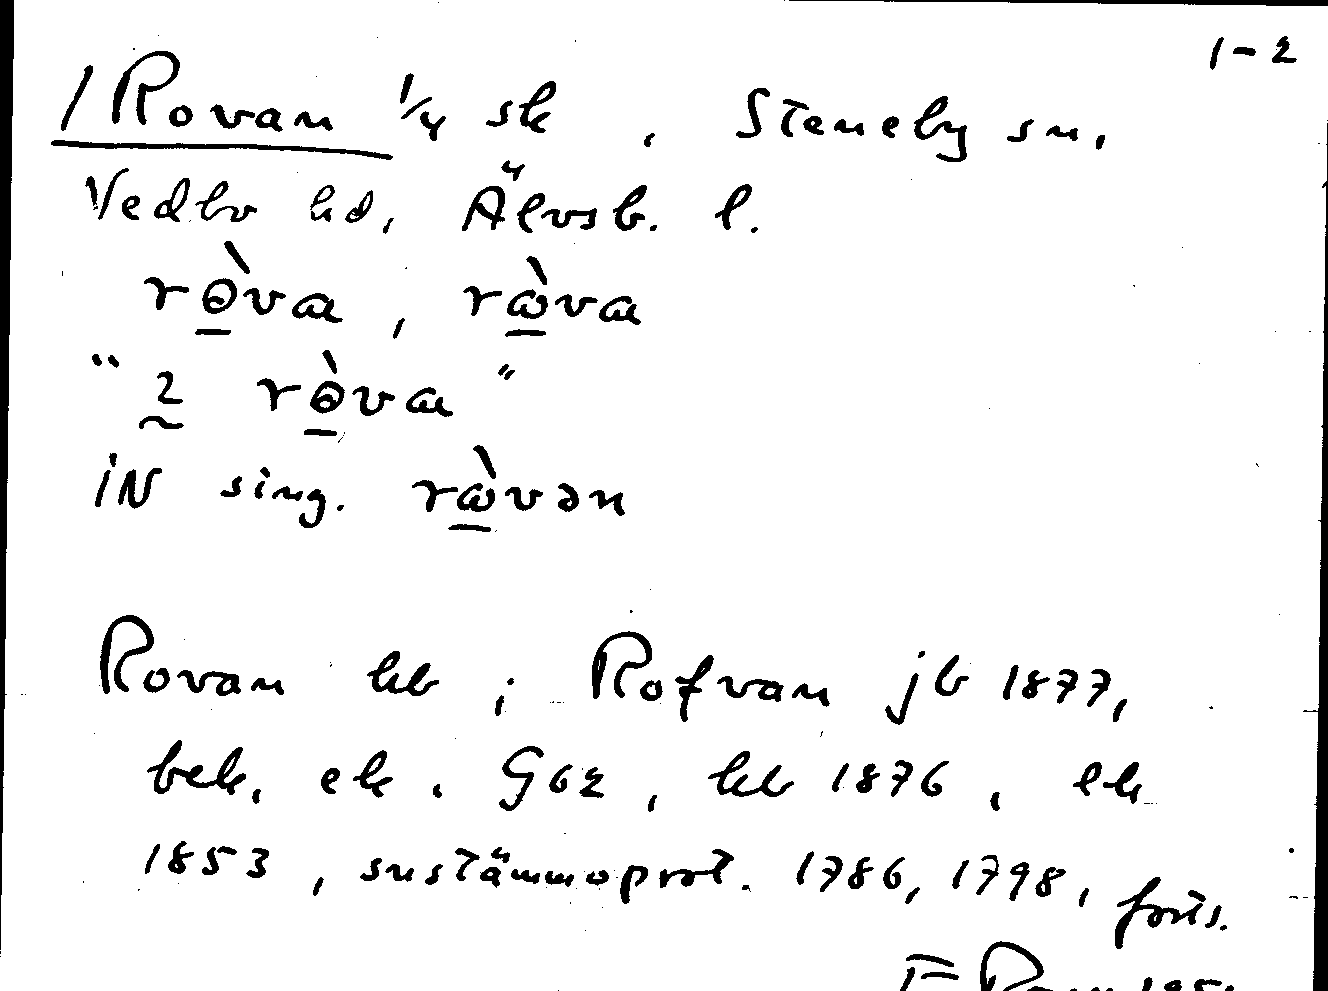 1-2
/Rovan 1/4 sk, Steneby sn,
Vedbo hd, Älvsb. l.
rɵ̀va, rὼva
"2 rɵ̀va"
iN sing. rὼvən
Rovan kb; Rofvan jb 1877,
bek. ek. G62, kb 1876, ek
1853, sustämmoprot. 1786, 1798, forts.